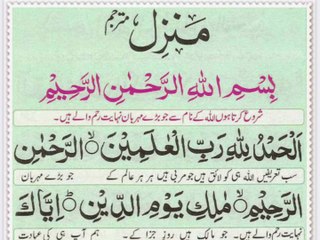 منزل مترجم
بِسْمِ اللهِ الرَّحْمٰنِ الرَّحِيْمِ
شروع کرتا ہوں اللہ کے نام سے جو بڑے مہربان نہایت رحم والے ہیں۔
اَلْحَمْدُ لِلهِ رَبِّ الْعٰلَمِيْنَ ۙ الرَّحْمٰنِ
سب تعریفیں اللہ ہی کو لائق ہیں جو مربی ہیں ہر ہر عالم کے جو بڑے مہربان
الرَّحِيْمِ ۙ مٰلِكِ يَوْمِ الدِّيْنِ ؕ اِيَّاكَ
نہایت رحم والے ہیں۔ جو مالک ہیں روز جزا کے۔ ہم آپ ہی کی عبادت